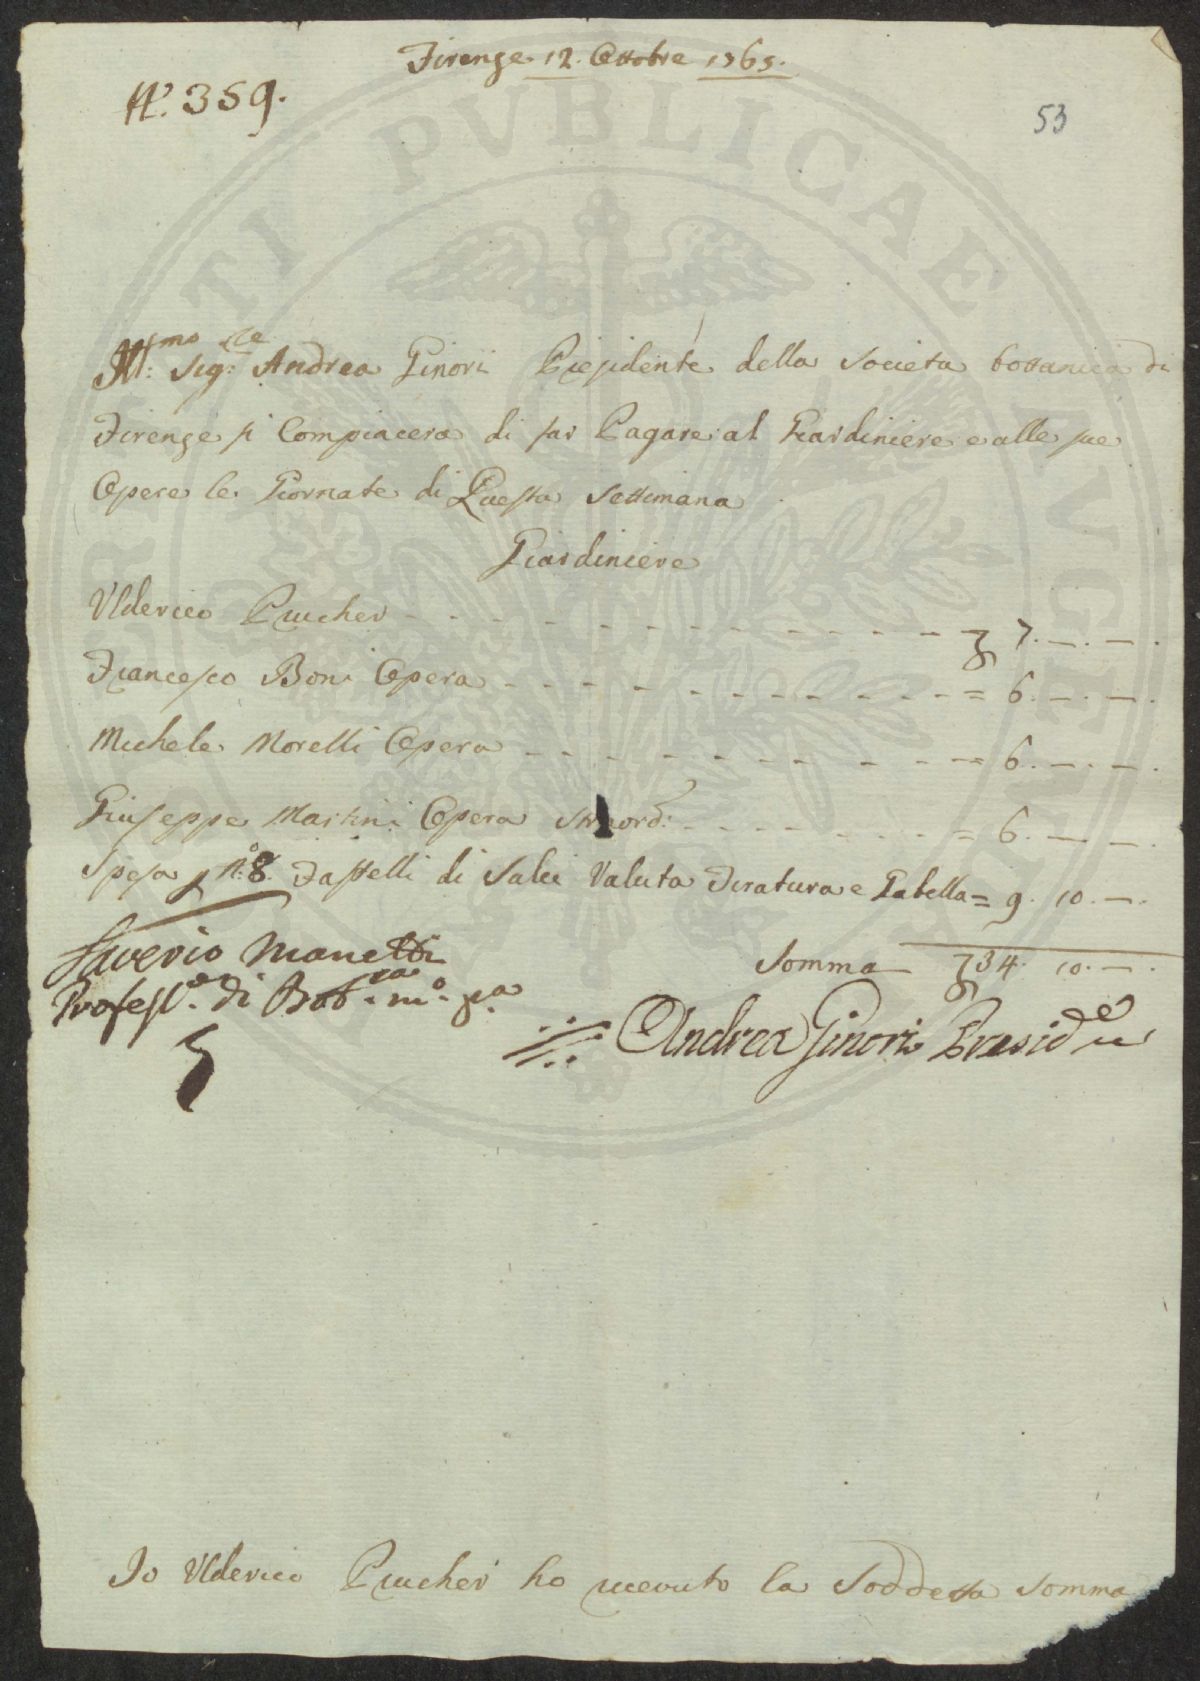 Firenze 12. Ottobre 1765.
N.º 359.
53
Ill:mo Sig:re Andrea Ginori Presidente della Societa bottanica di
Firenze si Compiacera di far Pagare al Giardiniere e alle sue
Opere le Giornate di Questa Settimana
Giardiniere
Ulderico Prucher - - - - - - - - - - 7. — . — .
Francesco Boni Opera - - - - - - - - - = 6. — . — .
Michele Morelli Opera - - - - - - - - = 6. — . — .
Giuseppe Martini Opera straord: - - - - - - = 6. — . — .
Spesa p n.º 8. Fastelli di Salci Valuta Tiratura e Gabella = 9. 10. — .
Saverio Manetti
Profess.e di Bot.ca m.o p.a
Somma 34. 10. — .
Andrea Ginori Presid.e
Io Ulderico Prucher ho ricevuto la Soddetta Somma
PVBLICAE